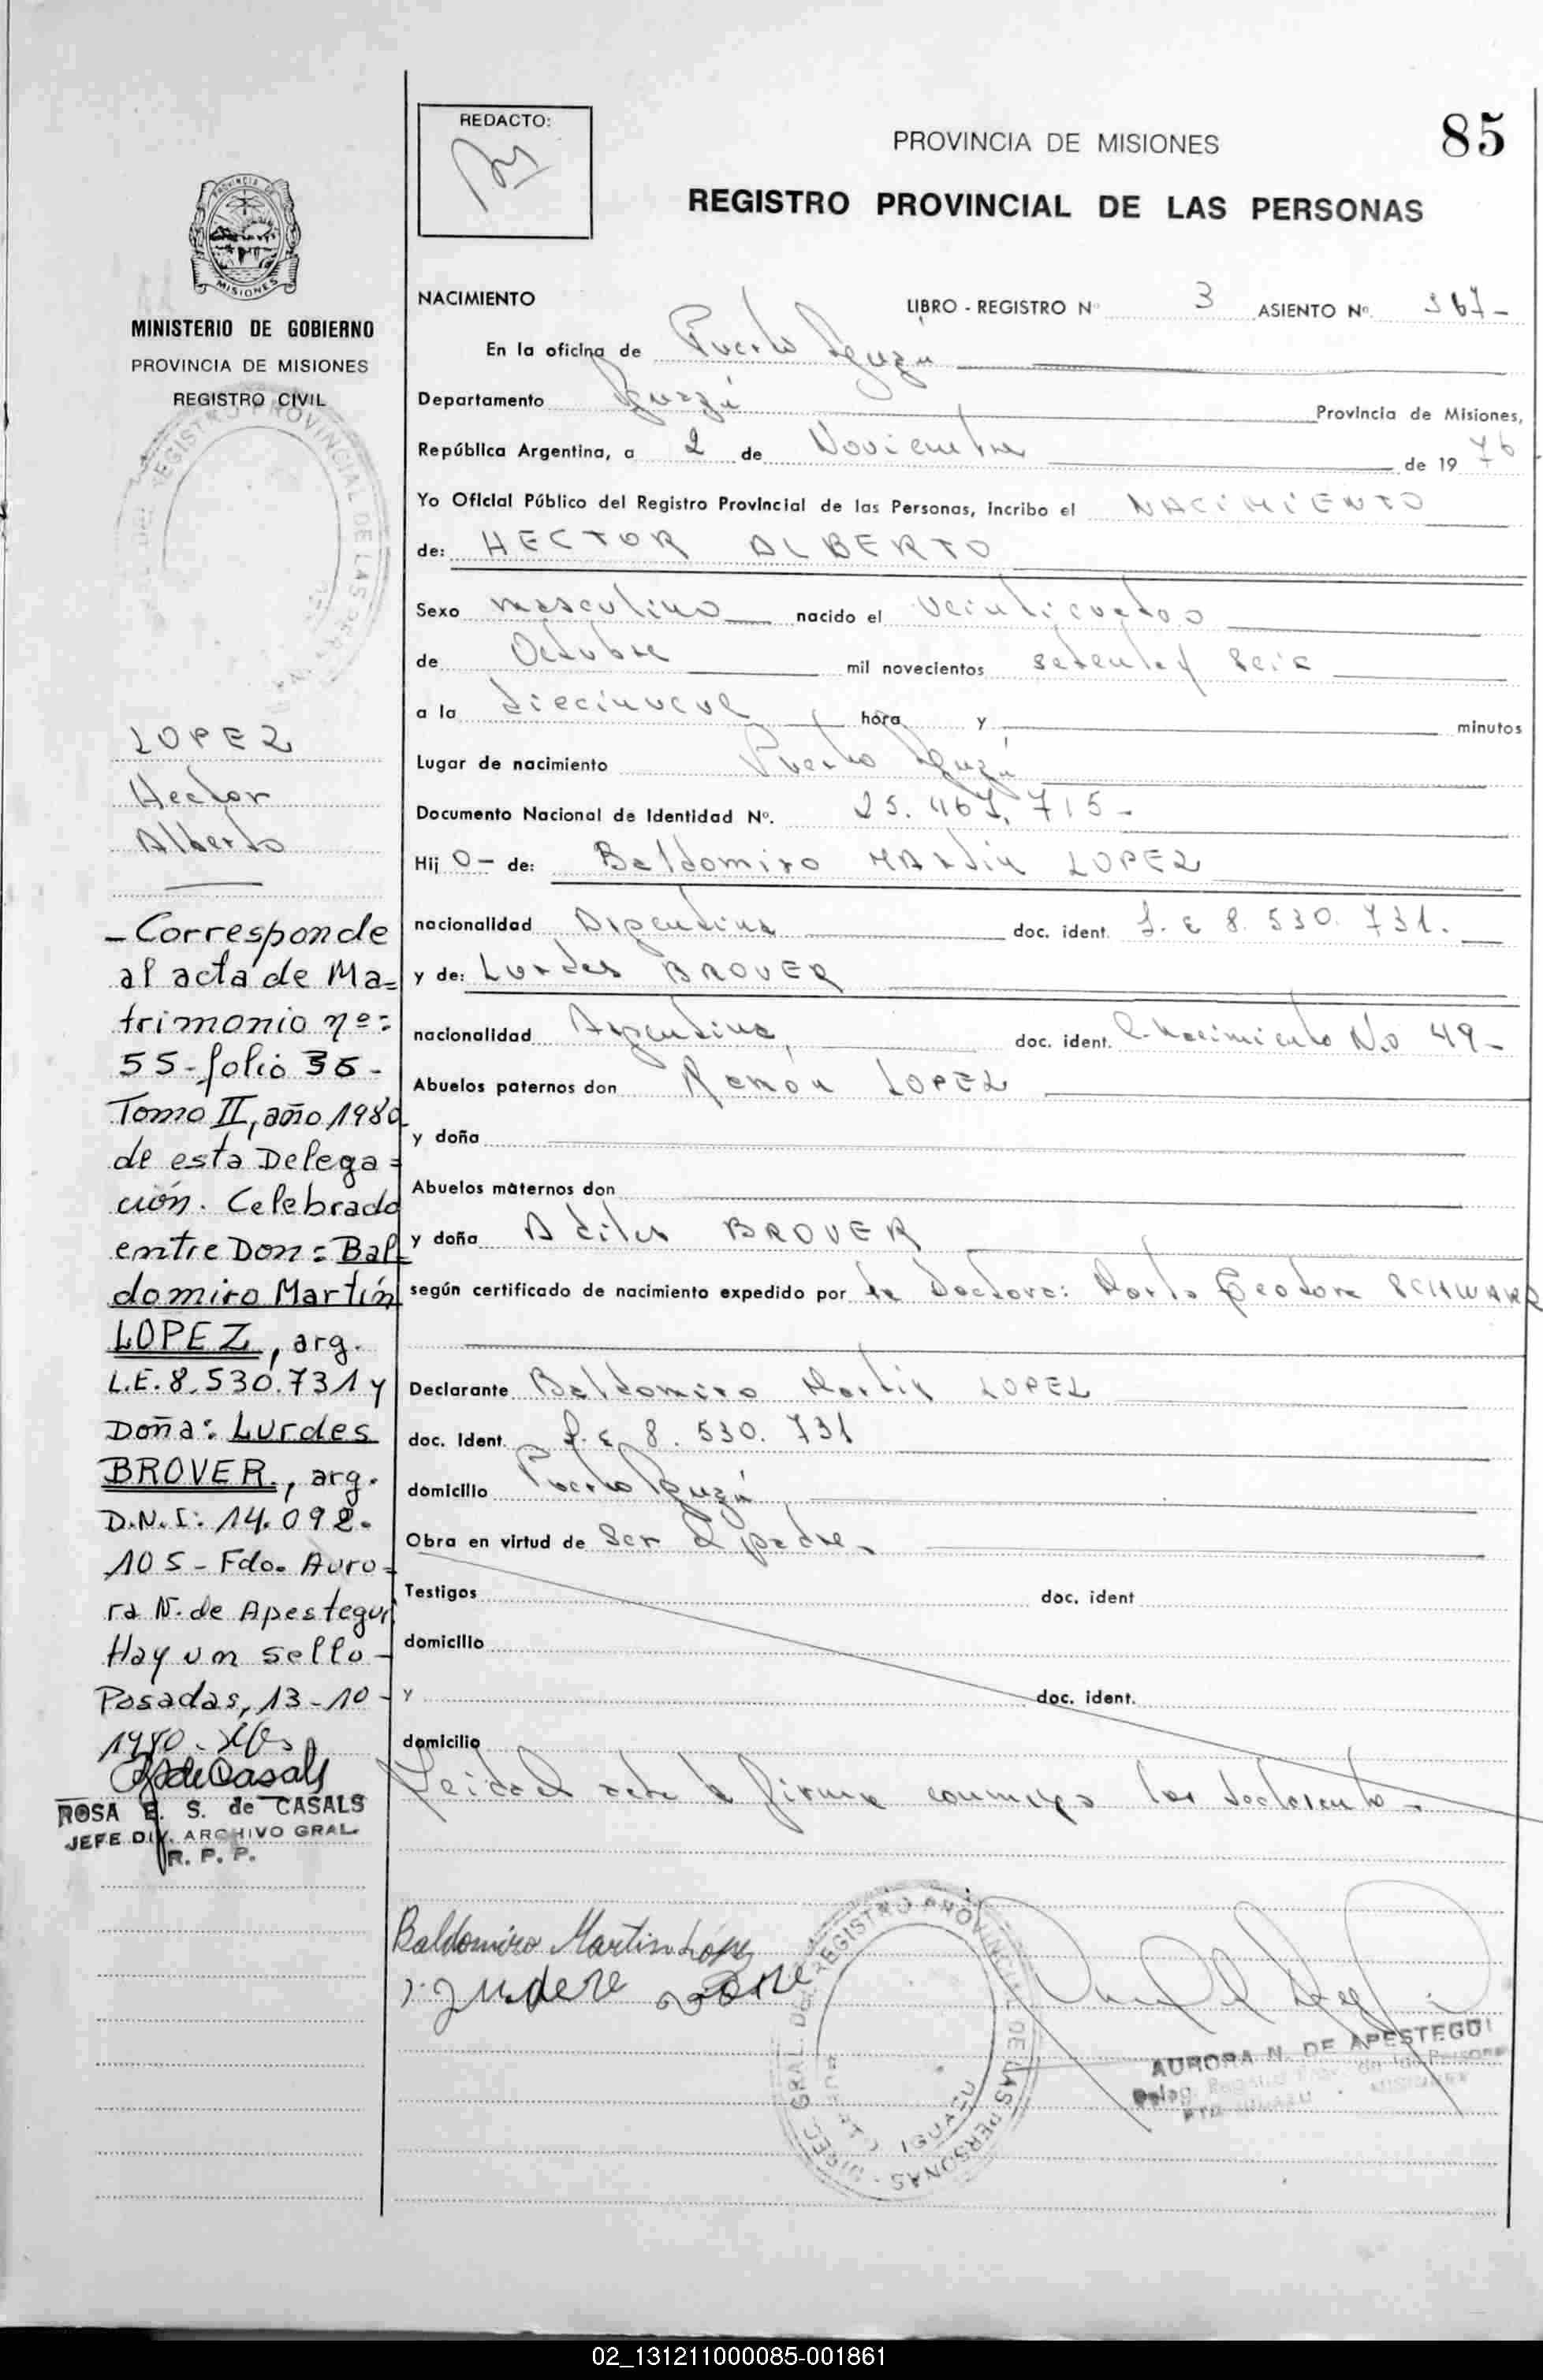 REDACTO:
PROVINCIA DE MISIONES
85
REGISTRO PROVINCIAL DE LAS PERSONAS
PROVINCIA DE
MISIONES
MINISTERIO DE GOBIERNO
PROVINCIA DE MISIONES
REGISTRO CIVIL
REGISTRO PROVINCIAL DE LAS PER
LOPEZ
Hector
Alberto
- Corresponde
al acta de Ma=
trimonio nº:
55 - folio 36 -
Tomo II, año 1980
de esta Delega=
ción. Celebrado
entre Don: Bal
domiro Martín
LOPEZ, arg.
L.E. 8.530.731 y
Doña: Lurdes
BROVER, arg.
D.N.I: 14.092.
105 - Fdo. Auro=
ra N. de Apestegui
Hay un sello -
Posadas, 13-10-
1980.
ROSA E. S. de CASALS
JEFE DIV. ARCHIVO GRAL.
R. P. P.
NACIMIENTO LIBRO - REGISTRO Nº 3 ASIENTO Nº 367 -
En la oficina de Puerto Iguazú
Departamento Iguazú Provincia de Misiones,
República Argentina, a 2 de Noviembre de 1976
Yo Oficial Público del Registro Provincial de las Personas, incribo el NACIMIENTO
de: HECTOR ALBERTO
Sexo masculino nacido el veinticuatro
de Octubre mil novecientos setenta y seis
a la diecinueve hora y minutos
Lugar de nacimiento Puerto Iguazú
Documento Nacional de Identidad Nº. 25.467.715 -
Hij o- de: Baldomiro MARtin LOPEZ
nacionalidad Argentina doc. ident. L. E 8.530.731.
y de: Lurdes BROVER
nacionalidad Argentina, doc. ident. C. Nacimiento No 49 -
Abuelos paternos don Ramón LOPEZ
y doña
Abuelos maternos don
y doña BROVER
según certificado de nacimiento expedido por la Doctora: Marta SCHWARZ
Declarante Baldomiro Martin LOPEZ
doc. Ident. L. E 8.530.731
domicilio Puerto Iguazú
Obra en virtud de ser el padre.
Testigos doc. ident
domicilio
y doc. ident.
domicilio
Leida el acta la firma conmigo los declarante.
Baldomiro Martin López
DIREC. GRAL. DEL REGISTRO PROVINCIAL DE LAS PERSONAS
IGUAZU
AURORA N. DE APESTEGUI
02_131211000085-001861